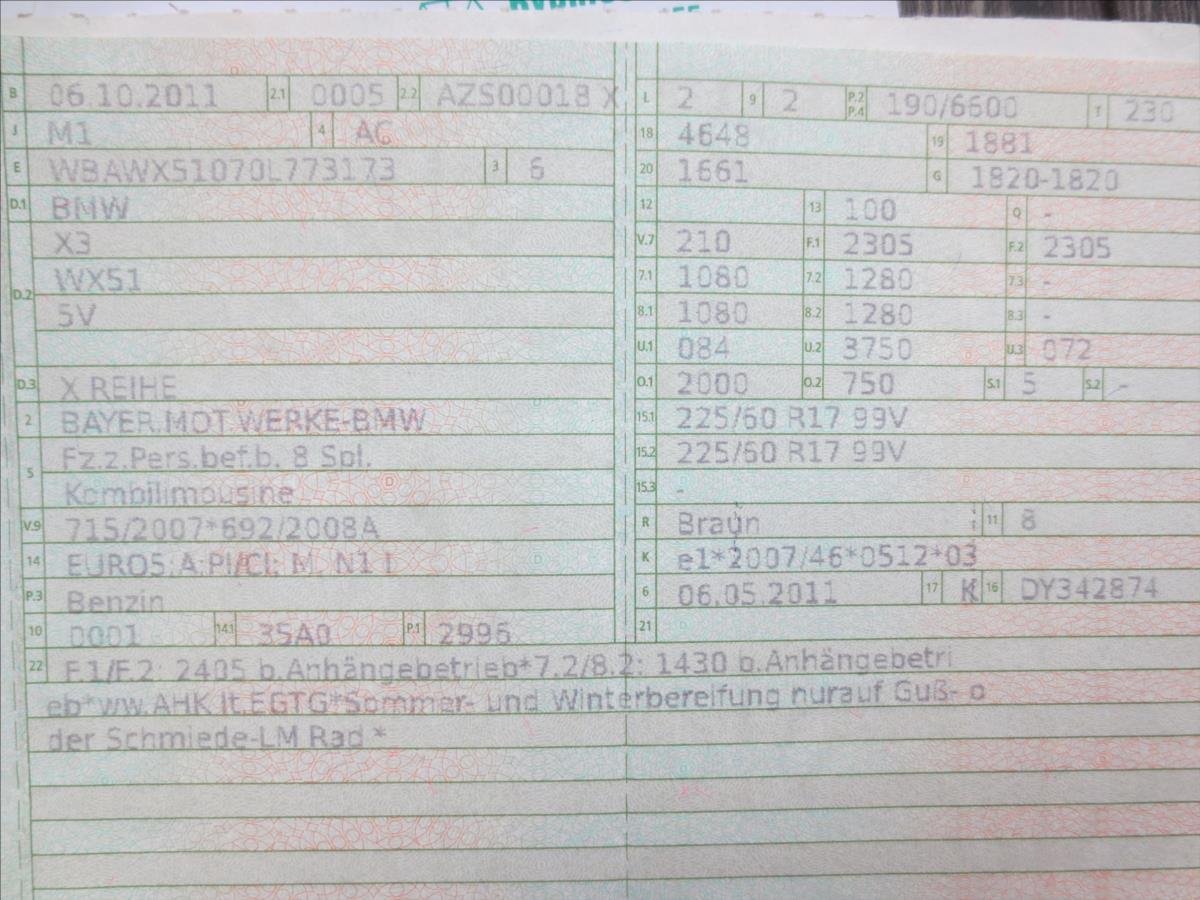 B 06.10.2011 2.1 0005 2.2 AZS00018 X
J M1 4 AC
E WBAWX51070L773173 3 6
D.1 BMW
X3
D.2 WX51
5V
D.3 X REIHE
2 BAYER.MOT.WERKE-BMW
5 Fz.z.Pers.bef.b. 8 Spl.
Kombilimousine
V.9 715/2007*692/2008A
14 EURO5;A;PI/CI; M, N1 I
P.3 Benzin
10 0001 14.1 35A0 P.1 2996
L 2 9 2 P.2 P.4 190/6600 T 230
18 4648 19 1881
20 1661 G 1820-1820
12 13 100 Q -
V.7 210 F.1 2305 F.2 2305
7.1 1080 7.2 1280 7.3 -
8.1 1080 8.2 1280 8.3 -
U.1 084 U.2 3750 U.3 072
O.1 2000 O.2 750 S.1 5 S.2 -
15.1 225/60 R17 99V
15.2 225/60 R17 99V
15.3 -
R Braun 11 8
K e1*2007/46*0512*03
6 06.05.2011 17 K 16 DY342874
21
22 F.1/F.2: 2405 b.Anhängebetrieb*7.2/8.2: 1430 b.Anhängebetri
eb*ww.AHK lt.EGTG*Sommer- und Winterbereifung nurauf Guß- o
der Schmiede-LM Rad *